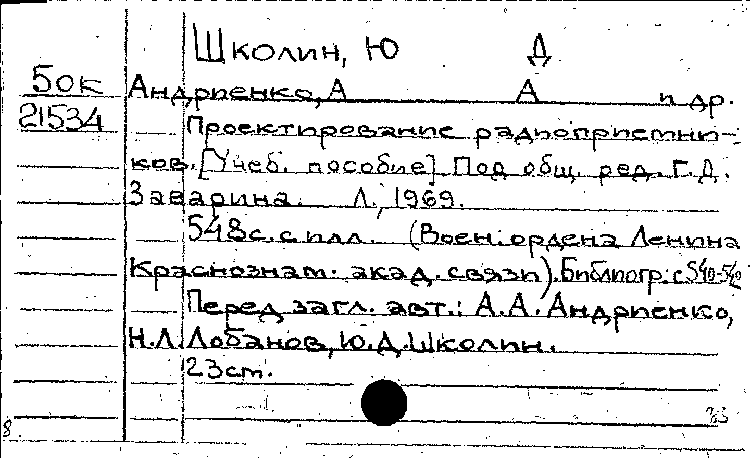 Школин, Ю Д
50к Андриенко, А А и др.
21534 Проектирование радиоприемни-
ков. [Учеб. пособие] Под общ. ред. Г.Д.
Заварина. Л., 1969.
548с. с илл. (Воен. ордена Ленина
Краснознам. акад. связи). Библиогр.: с 540-542
Перед загл. авт.: А.А. Андриенко,
Н.Л. Лобанов, Ю.Д. Школин.
23см.
8